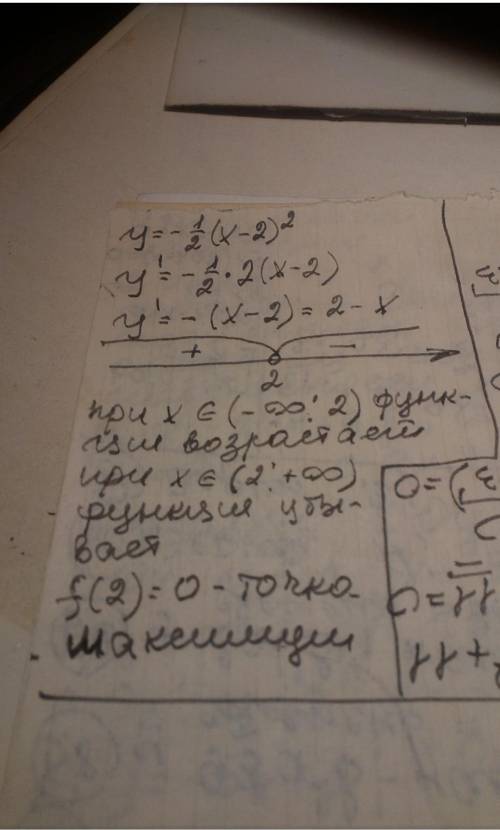 y = -1/2 (x-2)²
y' = -1/2 · 2(x-2)
y' = -(x-2) = 2 - x
+ −
2
при x ∈ (-∞; 2) функ-
ция возрастает
при x ∈ (2; +∞)
функция убы-
вает
f(2) = 0 - точка
максимации